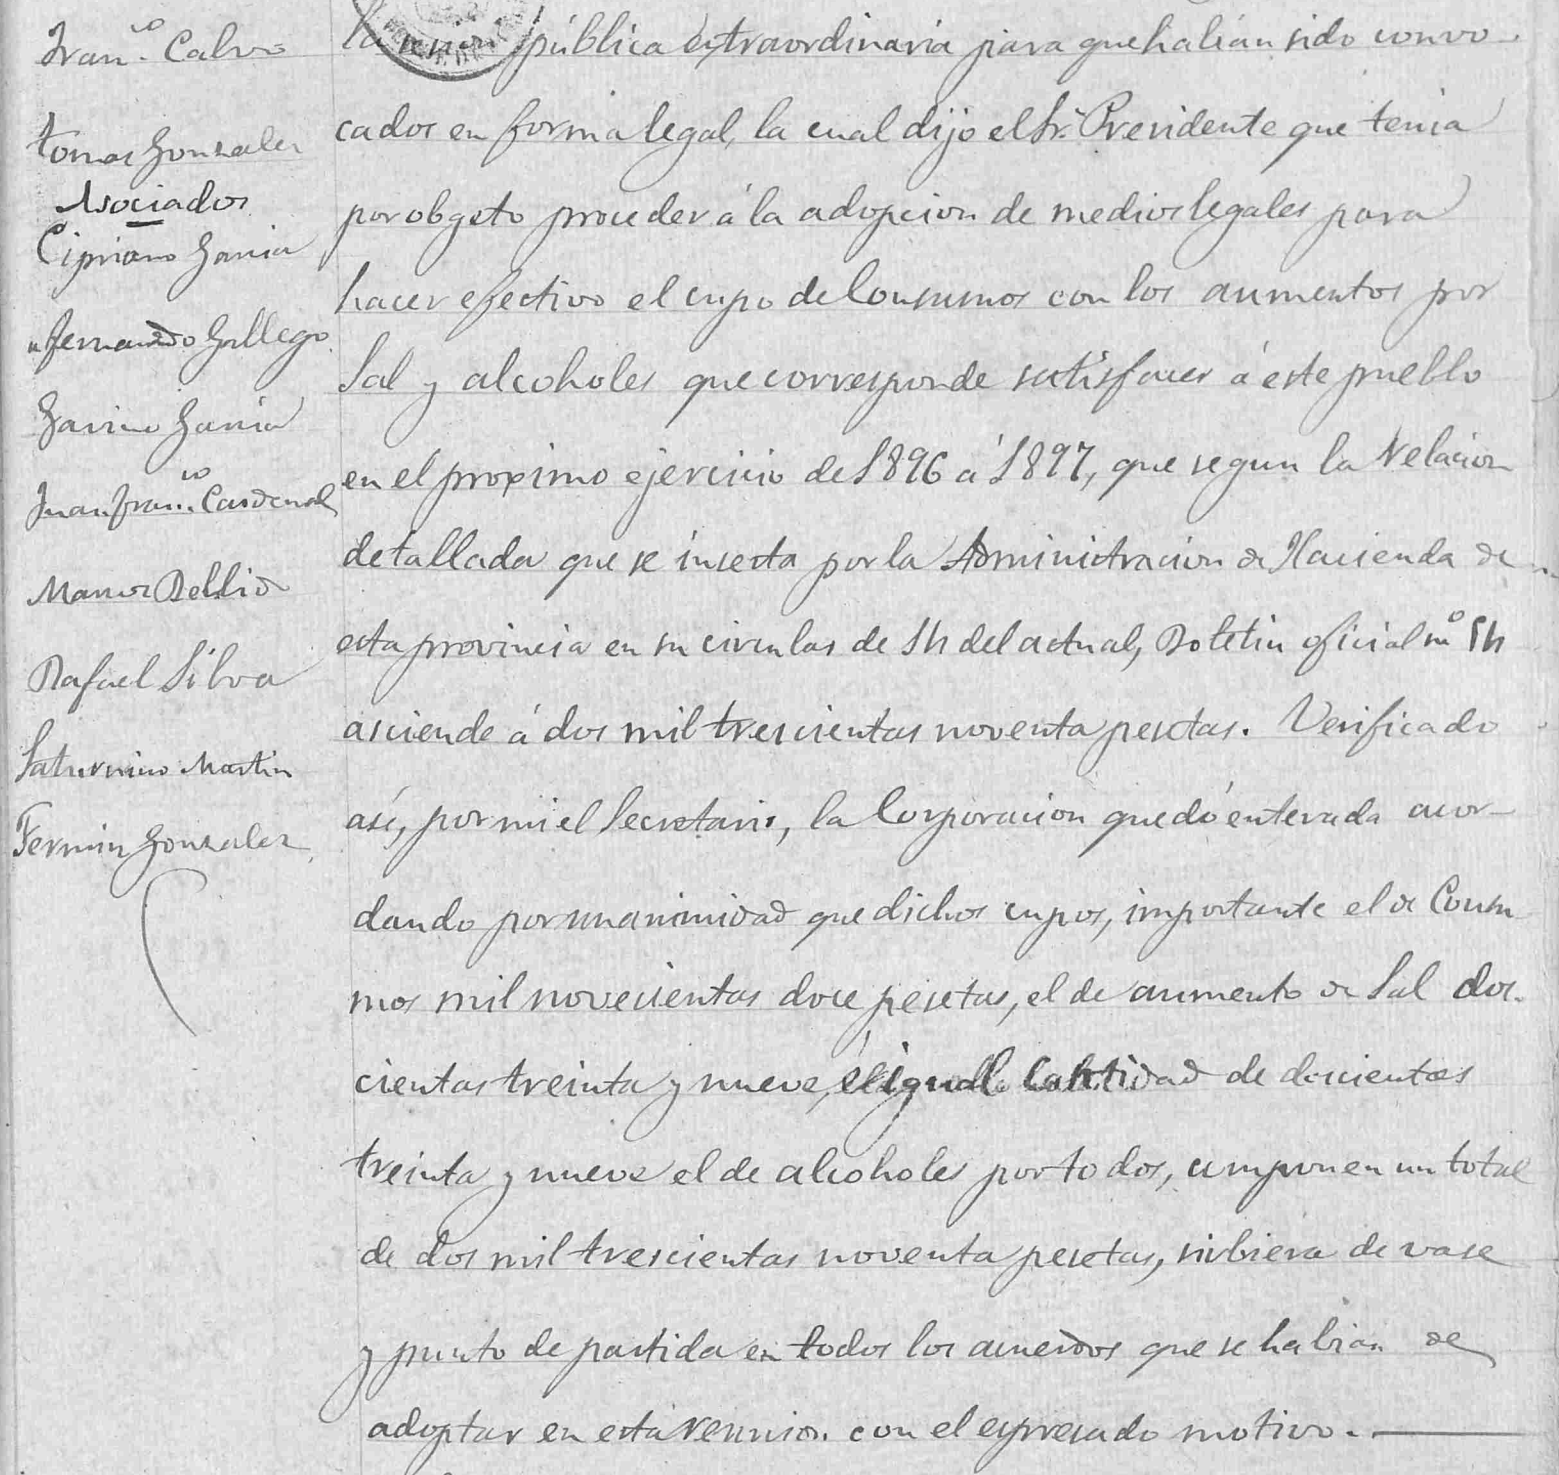 Fran.co Calvo
Tomas Gonzalez
Asociados
Cipriano Garcia
Fernando Gallego
Gavino Garcia
Juan Fran.co Cardenal
Marcos Bellido
Rafael Silva
Saturnino Martin
Fermin Gonzalez
la sesion pública extraordinaria para que habian sido convo-
cados en forma legal, la cual dijo el Sr. Presidente que tenia
por obgeto proceder á la adopcion de medios legales para
hacer efectivo el cupo de Consumos con los aumentos por
Sal y alcoholes que corresponde satisfacer á este pueblo
en el proximo ejercicio de 1896 á 1897, que segun la Relacion
detallada que se inserta por la Administracion de Hacienda de
esta provincia en su circular de 14 del actual, Boletin oficial nº 54
asciende á dos mil trescientas noventa pesetas. Verificado
así, por mi el Secretario, la Corporacion quedó enterada acor-
dando por unanimidad que dichos cupos, importante el de Consu
mos mil novecientas doce pesetas, el de aumento de Sal dos-
cientas treinta y nueve, é igual cantidad de doscientas
treinta y nueve el de alcoholes por todos, componen un total
de dos mil trescientas noventa pesetas, sirbiera de vase
y punto de partida en todos los acuerdos que se habian de
adoptar en esta reunion con el espresado motivo.